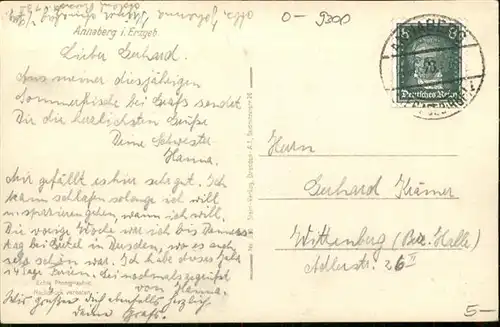 0-9200
Annaberg i. Erzgeb
Lieber Gerhard.
Aus meiner diesjährigen
Sommerfrische bei Grafs sendet
Dir die herzlichsten Grüße
Deine Schwester
Hanna.
Mir gefällt es hier sehr gut. Ich
kann schlafen solange ich will
u. spazieren gehen, wann ich will.
Die vorige Woche war ich bis Donners-
tag bei in Dresden, wo es auch
sehr schön war. Ich habe dieses Jahr
14 Tage Ferien. Sei nochmals gegrüßt
von Hanna.
Echte Photographie
Nachdruck verboten
Wir grüßen Dich ebenfalls herzlich.
Deine Grafs.
Stern-Verlag, Dresden-A.1,
ANNABERG
(ERZGEBIRGE)
8 8
Deutsches Reich
Herrn
Gerhard Krämer
Wittenberg (Bez. Halle)
Adlerstr. 26 II
5-